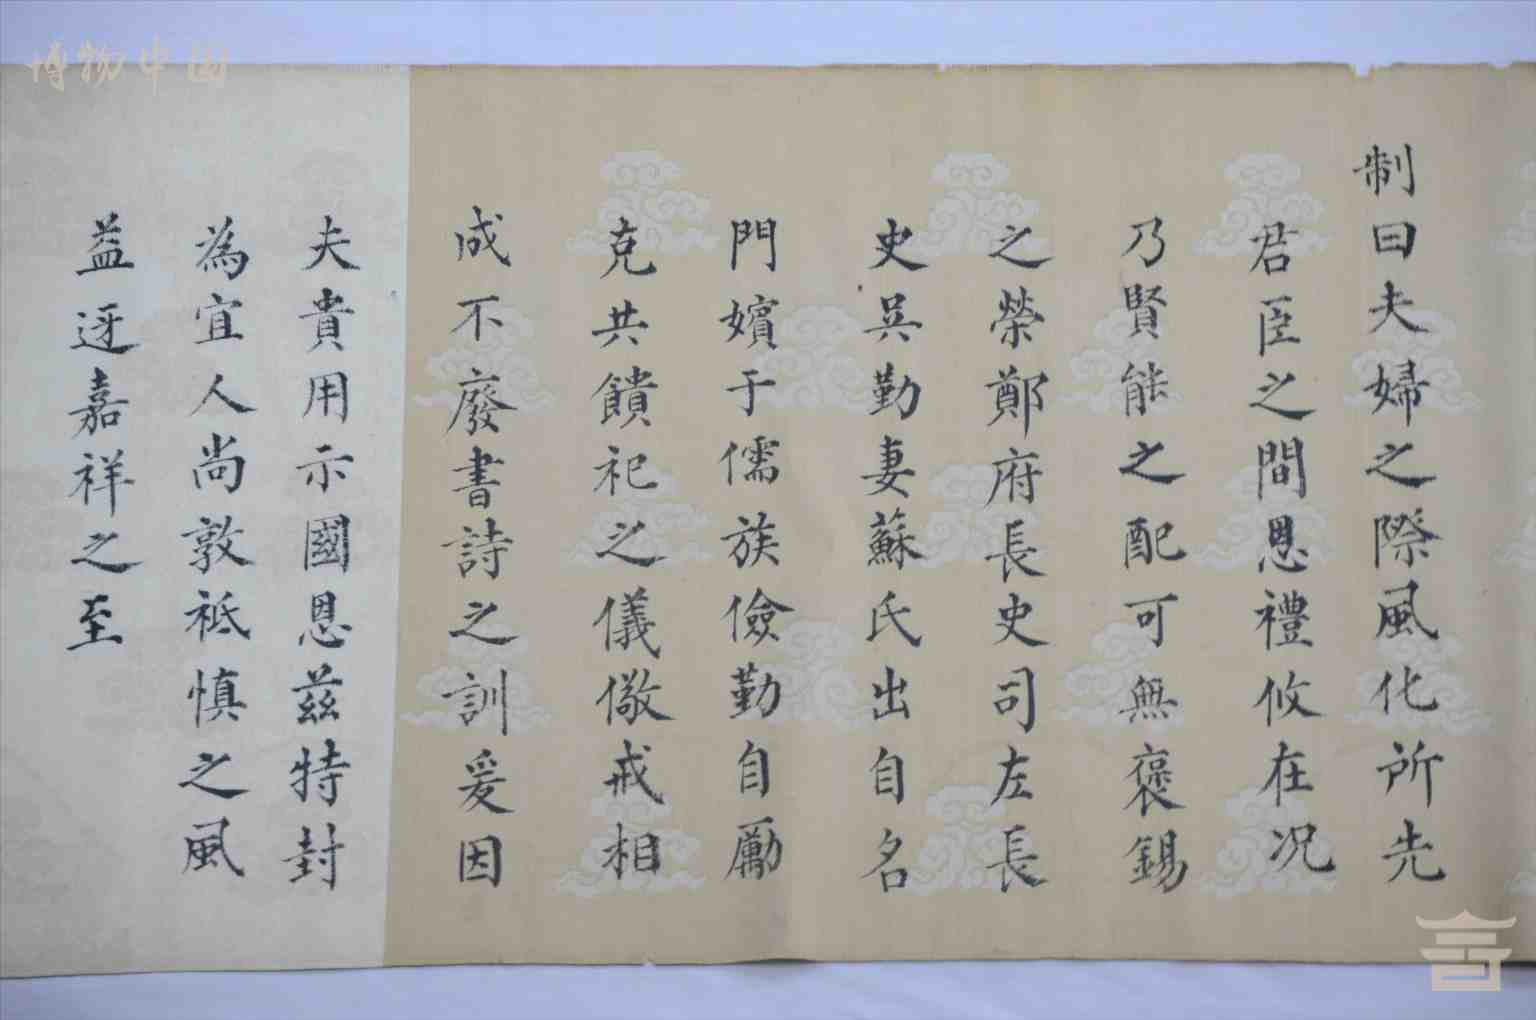 制曰夫婦之際風化所先
君臣之間恩禮攸在况
乃賢能之配可無褒錫
之榮鄭府長史司左長
史吴勤妻蘇氏出自名
門嬪于儒族儉勤自勵
克共饋祀之儀儆戒相
成不廢書詩之訓爰因
夫貴用示國恩茲特封
為宜人尚敦祇慎之風
益迓嘉祥之至
博物中国